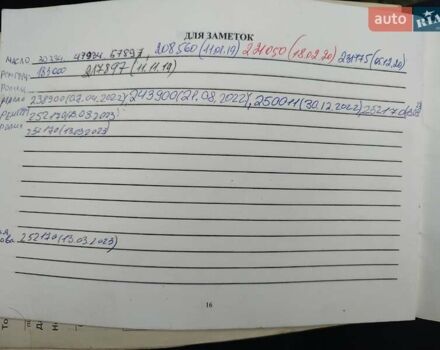 auto RIA
ДЛЯ ЗАМЕТОК
масло 30334, 47934 67897, 208560 (11.01.19) 221050 (18.02.20) 231775 (05.12.20)
183000 217897 (11.11.19)
238900 (07.04.2022), 243900 (21.08.2022), 250011 (30.12.2022), 252170
252170 (13.03.2023)
252170 (13.03.2023)
252170 (13.03.2023)
16